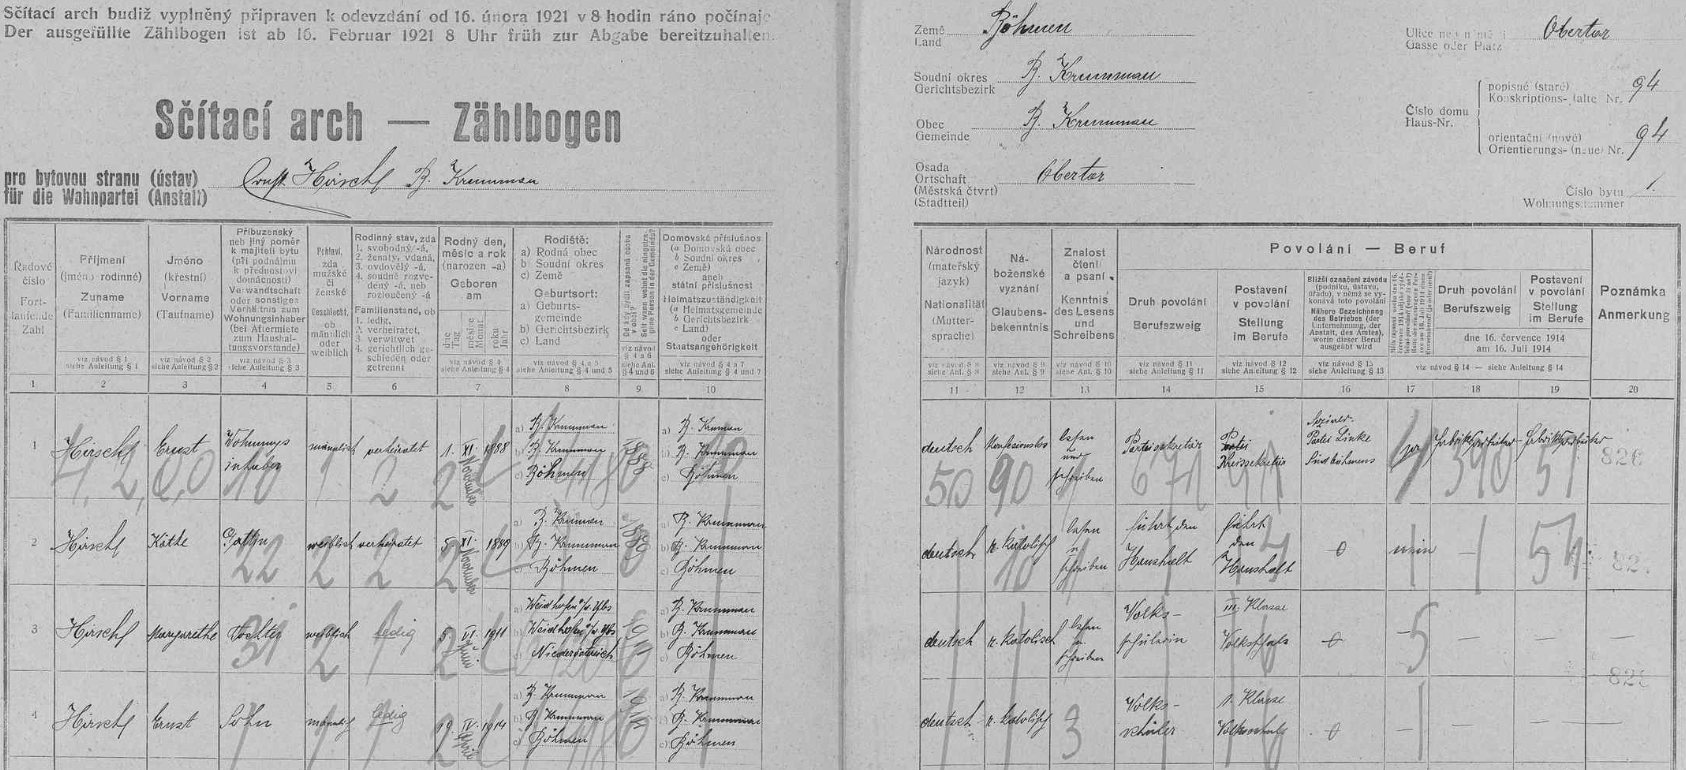 Sčítací arch budiž vyplněný připraven k odevzdání od 16. února 1921 v 8 hodin ráno počínaje
Der ausgefüllte Zählbogen ist ab 16. Februar 1921 8 Uhr früh zur Abgabe bereitzuhalten.
Sčítací arch — Zählbogen
pro bytovou stranu (ústav)
für die Wohnpartei (Anstalt)
Ernst Hirschl B. Krummau
Země
Land
Böhmen
Soudní okres
Gerichtsbezirk
B. Krummau
Obec
Gemeinde
B. Krummau
Osada
Ortschaft
(Městská čtvrť)
(Stadtteil)
Obertor
Gasse oder Platz
Obertor
Číslo domu
Haus-Nr.
popisné (staré)
Konskriptions- (alte) Nr. 94
orientační (nové)
Orientierungs- (neue) Nr. 94
Číslo bytu
Wohnungsnummer
1.
Řadové
číslo
Fort-
laufende
Zahl
Příjmení
(jméno rodinné)
Zuname
(Familienname)
viz návod § 1
siehe Anleitung § 1
Jméno
(křestní)
Vorname
(Taufname)
viz návod § 2
siehe Anleitung § 2
Příbuzenský
neb jiný poměr
k majiteli bytu
(při podnájmu
k přednostovi
domácnosti)
Verwandtschaft
oder sonstiges
Verhältnis zum
Wohnungsinhaber
(bei Aftermiete
zum Haushal-
tungsvorstande)
viz návod § 3
siehe Anleitung § 3
Pohlaví,
zda
mužské
či
ženské
Geschlecht,
ob
männlich
oder
weiblich
Rodinný stav, zda
1. svobodný/-á,
2. ženatý, vdaná,
3. ovdovělý -á,
4. soudně rozve-
dený -á, neb
rozloučený -á
Familienstand, ob
1. ledig,
2. verheiratet,
3. verwitwet
4. gerichtlich ge-
schieden oder
getrennt
Rodný den,
měsíc a rok
(narozen -a)
Geboren
am
dne
Tag
měsíce
Monat
roku
Jahr
viz návod § 4
siehe Anleitung § 4
Rodiště:
a) Rodná obec
b) Soudní okres
c) Země
Geburtsort:
a) Geburts-
gemeinde
b) Gerichtsbezirk
c) Land
viz návod § 4 a 5
siehe Anleitung § 4 und 5
Domovská příslušnost
(a Domovská obec
b Soudní okres
c Země)
aneb
státní příslušnost
Heimatszuständigkeit
(a Heimatsgemeinde
b Gerichtsbezirk
c Land)
oder
Staatsangehörigkeit
viz návod § 4 a 7
siehe Anleitung § 4 und 7
Národnost
(mateřský
jazyk)
Nationalität
(Mutter-
sprache)
Ná-
boženské
vyznání
Glaubens-
bekenntnis
Znalost
čtení
a psaní
Kenntnis
des Lesens
und
Schreibens
Povolání — Beruf
Druh povolání
Berufszweig
viz návod § 11
siehe Anleitung § 11
Postavení
v povolání
Stellung
im Berufe
viz návod § 12
siehe Anleitung § 12
Bližší označení závodu
(podniku, ústavu,
úřadu), v němž se vy-
konává toto povolání
Nähere Bezeichnung
des Betriebes (der
Unternehmung, der
Anstalt, des Amtes),
worin dieser Beruf
ausgeübt wird
viz návod § 13
siehe Anleitung § 13
Druh povolání
Berufszweig
Postavení
v povolání
Stellung
im Berufe
dne 16. července 1914
am 16. Juli 1914
viz návod § 14 — siehe Anleitung § 14
Poznámka
Anmerkung
1 2 3 4 5 6 7 8 9 10 11 12 13 14 15 16 17 18 19 20
1 Hirschl Ernst Wohnungsinhaber männlich verheiratet 1. XI. November 1888
a) B. Krummau
b) B. Krummau
c) Böhmen
1888
a) B. Krumau
b) B. Krummau
c) Böhmen
deutsch Konfessionslos lesen und schreiben Parteisekretär Kreissekretär ja Fabriksarbeiter Fabriksarbeiter 826
2 Hirschl Käthe Gattin weiblich verheiratet 5 XI. November 1889
a) B. Krumau
b) B. Krummau
c) Böhmen
a) B. Krummau
b) B. Krummau
c) Böhmen
deutsch r. katholisch lesen u. schreiben führt den Haushalt führt den Haushalt 0 nein
3 Hirschl Margarethe Tochter weiblich ledig VI. Juni 1911
a) Waidhofen a/d. Ybbs
b) Waidhofen a/d. Ybbs
c) Niederösterreich
a) B. Krummau
b) B. Krummau
c) Böhmen
deutsch r. katolisch lesen u. schreiben Volks-schülerin III. Klasse Volkssch. 0 — —
4 Hirschl Ernst Sohn männlich ledig 19 IV. April 1914
a) B. Krummau
b) B. Krummau
c) Böhmen
a) B. Krummau
b) B. Krummau
c) Böhmen
deutsch r. katolisch Volks-schüler 1. Klasse Volksschule 0 — — —